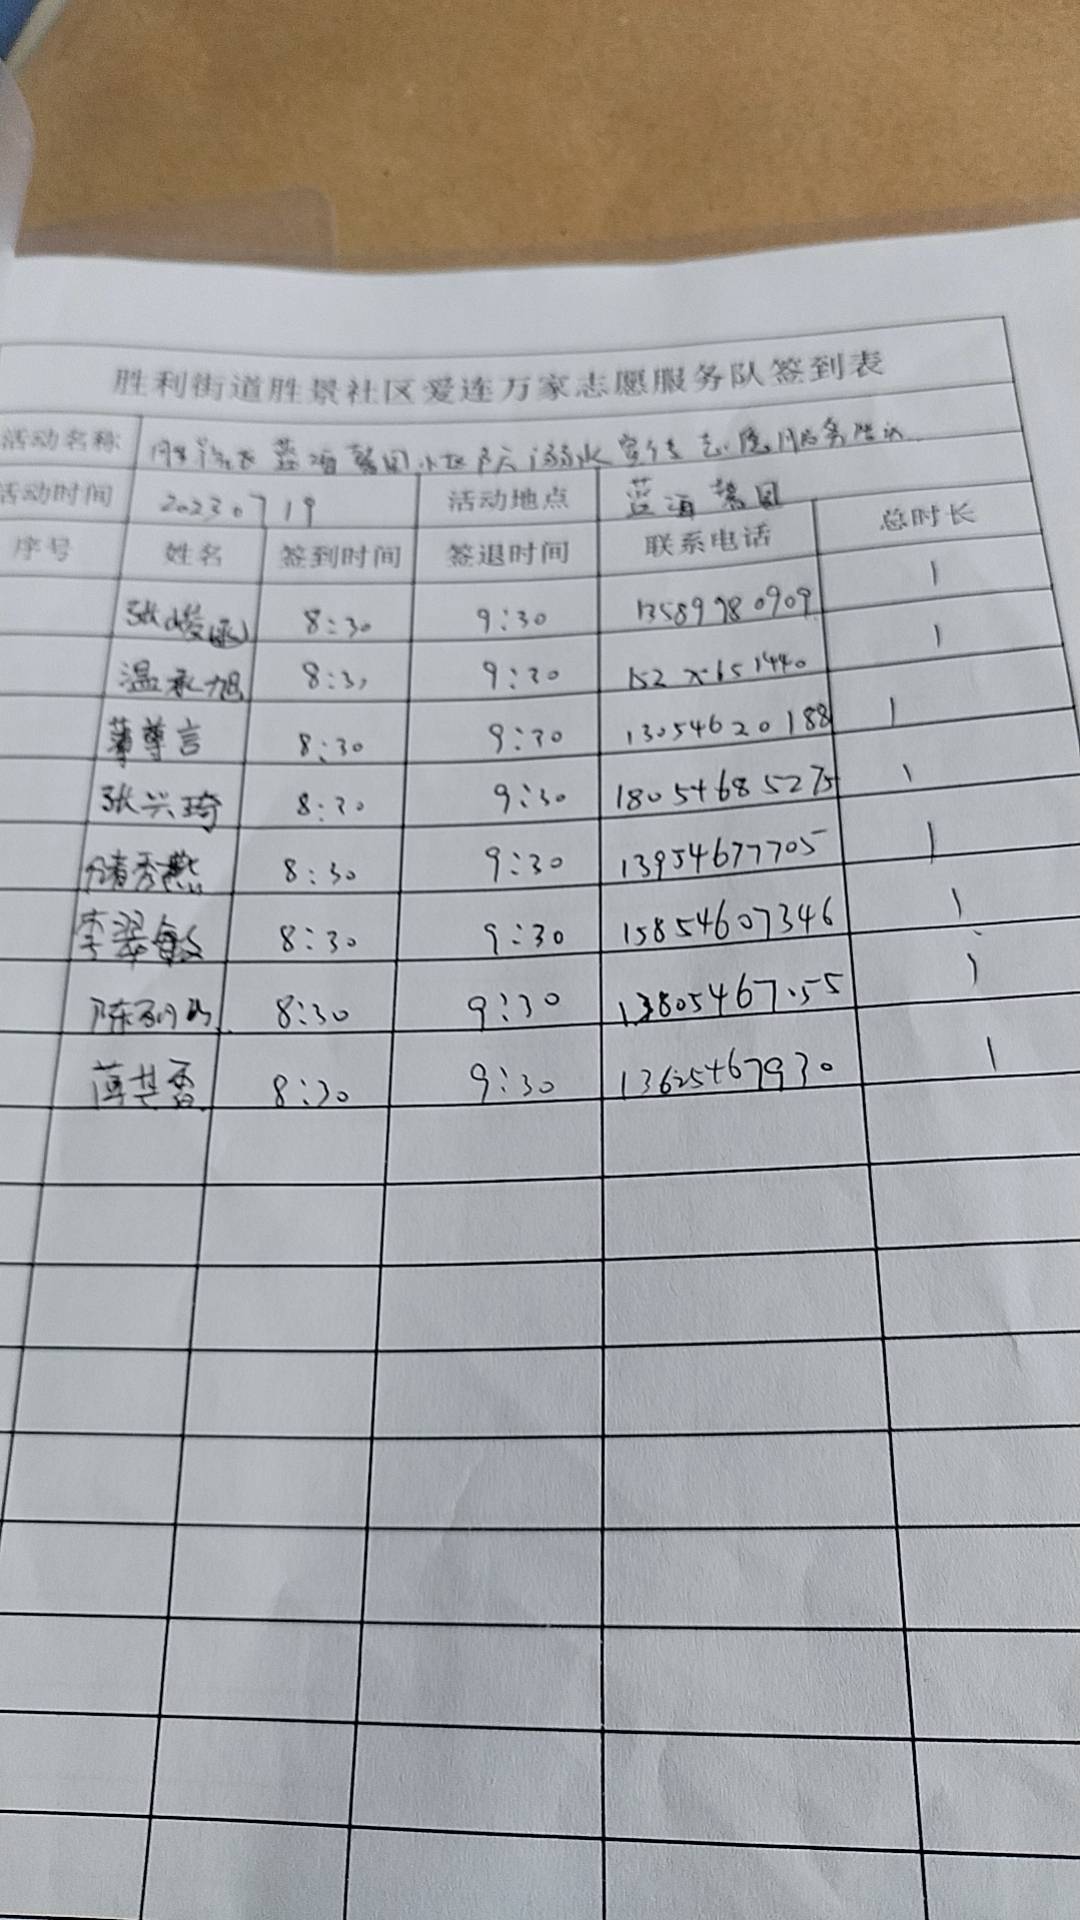 胜利街道胜景社区爱连万家志愿服务队签到表
活动名称 蓝海馨园小区防溺水宣传志愿服务活动
活动时间 20230719 活动地点 蓝海馨园
序号 姓名 签到时间 签退时间 联系电话 总时长
张峻函 8:30 9:30 13589980909 1
温承旭 8:30 9:30 1
薄尊言 8:30 9:30 13054620188 1
张兴琦 8:30 9:30 18054685275 1
秀燕 8:30 9:30 13954677705 1
李翠敏 8:30 9:30 15854607346 1
陈 8:30 9:30 1
薄其香 8:30 9:30 13625467930 1